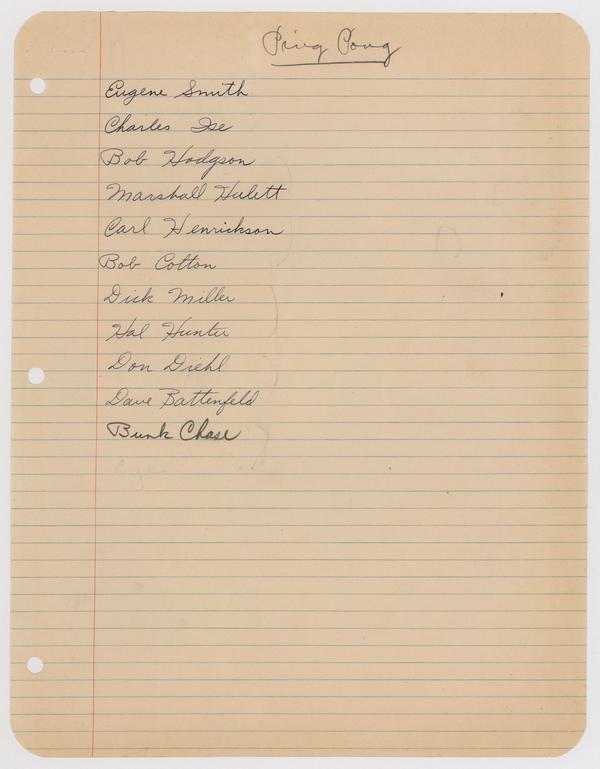 Ping Pong
Eugene Smith
Charles Ise
Bob Hodgson
Marshall Hulett
Carl Henrickson
Bob Cotton
Dick Miller
Hal Hunter
Don Diehl
Dave Battenfeld
Bunk Chase